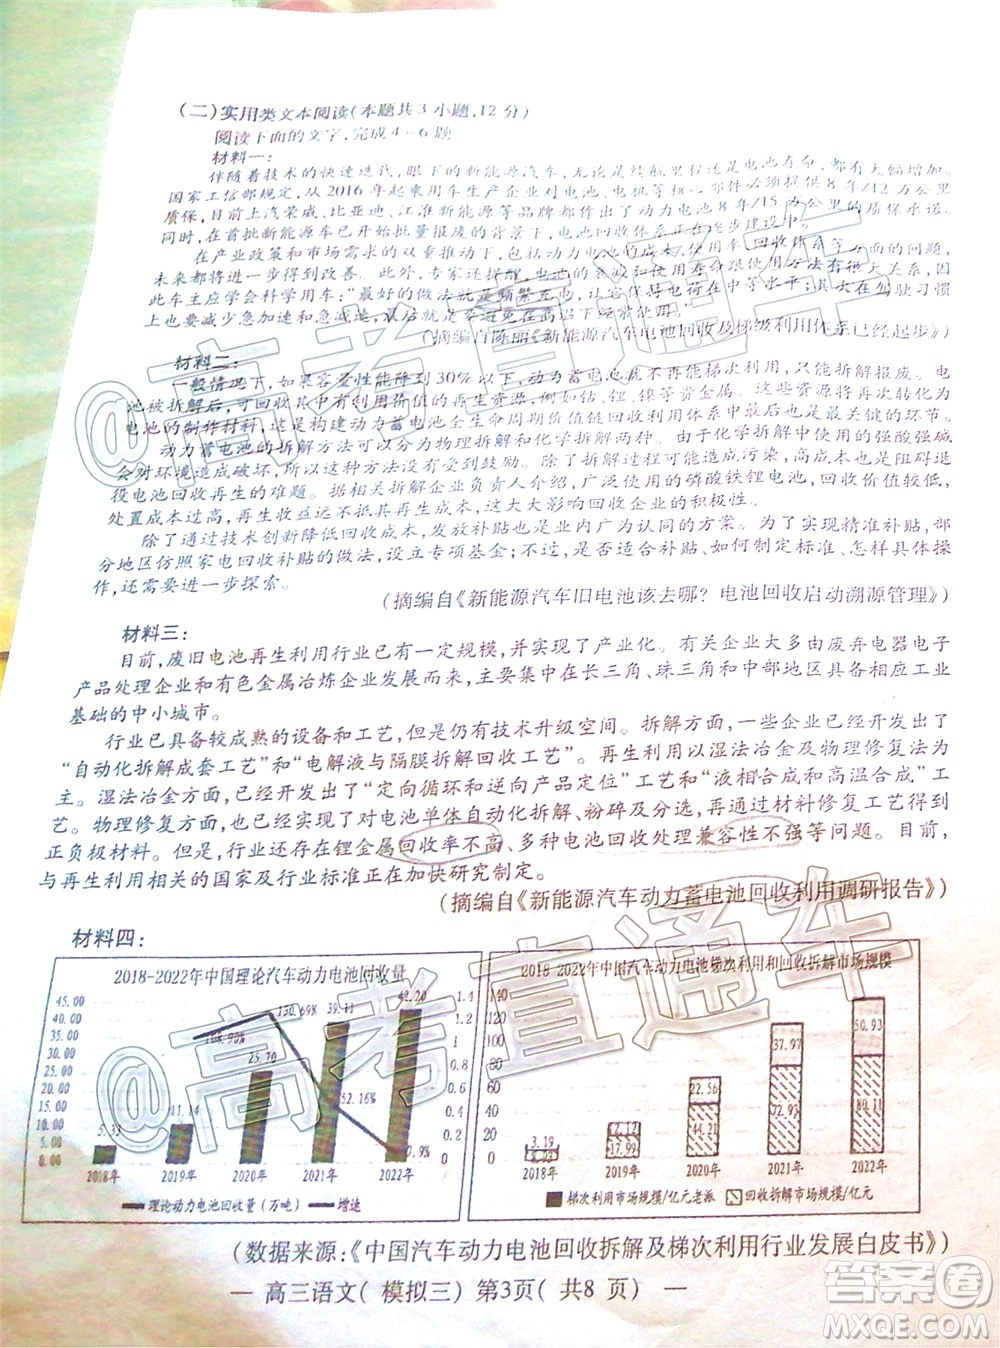 (二)实用类文本阅读(本题共3小题,12分)
阅读下面的文字,完成4-6题。
材料一:
伴随着技术的快速迭代,眼下的新能源汽车,无论是续航里程还是电池寿命,都有大幅增
国家工信部规定,从2016年起乘用车生产企业对电池、电机等核心部件必须提供8年/12万公里
质保,目前上汽荣威、比亚迪、江淮新能源等品牌都作出了动力电池8年/15万公里的质保承诺。
同时,在首批新能源车已开始批量报废的背景下,电池回收体系也在逐步建设中。
在产业政策和市场需求的双重推动下,包括动力电池的成本、电量、回收体系等方面的问题,
未来都将进一步得到改善。此外,专家还提示,电池的寿命和使用寿命跟使用方法有很大关系,
此车主应学会科学用车:“最好的做法就是频繁充电,让它保持电量在中等水平;其次在驾驶习惯
上也要减少急加速和急减速,最后就是尽量避免在高温下经常使用。”
(摘编自陈丽《新能源汽车电池回收及梯级利用体系已经起步》)
材料二:
一般情况下,如果容量性能降到30%以下,动力蓄电池无法梯次利用,只能拆解报废。电
池被拆解后,可回收其中有利用价值的再生资源,例如钴、锂、镍等贵金属。这些资源将再次转化为
电池的制作材料,这是构建动力蓄电池全生命周期价值链回收利用体系中是最关键的环节。
动力蓄电池的拆解方法可以分为物理拆解和化学拆解两种。由于化学拆解中使用的强酸强碱
会对环境造成破坏,所以,拆解过程可能造成二次污染,高成本也是阻碍退
役电池回收再生的难题。据电池拆解企业负责人介绍,广泛使用的磷酸铁锂电池,回收价值较低,
处置成本过高,再生收益远不抵其成本,这大大影响回收企业的积极性。
除了通过技术创新降低回收成本,发放补贴是业内广为认同的方案。为了实现精准补贴,部
分地区仿照家电回收补贴的做法,设立专项基金;不过,是否合适补贴、如何制定标准、怎样具体操
作,还需要进一步探索。
(摘编自《新能源汽车旧电池该去哪?电池回收启动溯源管理》)
材料三:
目前,废旧电池再生利用行业已有一定规模,并实现了产业化。有关企业大多由废弃电器电子
产品处理企业和有色金属冶炼企业发展而来,主要集中在长三角、珠三角和中部地区具有工业
基础的中小城市。
行业已具备较成熟的设备和工艺,但是仍有技术升级空间。拆解方面,一些企业已经开发出了
“自动化拆解成套工艺”和“电解液与隔膜拆解回收工艺”。再生利用以湿法冶金及物理修复法为
主。湿法冶金方面,已经开发出了“定向循环和逆向产品定位”工艺和“液相合成和高温合成”工
艺。物理修复方面,也已经实现了对电池单体自动化拆解、粉碎及分选,再通过材料修复工艺得到
正负极材料。但是,行业还存在锂金属回收率不高、多种电池回收处理兼容性不强等问题。目前,
与再生利用相关的国家及行业标准正在加快研究制定。
(摘编自《新能源汽车动力蓄电池回收利用调研报告》)
材料四:
2018-2022年中国理论汽车动力电池回收量
45.00
40.00
35.00
30.00
25.00
20.00
15.00
10.00
5.00
0.00
1.4
1.2
1
0.8
0.6
0.4
0.2
0
5.33
11.14
25.70
39.11
42.20
108.90%
130.69%
52.16%
7.9%
2018年 2019年 2020年 2021年 2022年
理论动力电池回收量(万吨) 增速
2018-2022年中国汽车动力电池梯次利用和回收拆解市场规模
140
120
100
80
60
40
20
0
3.19
7.12
17.99
22.56
44.21
37.97
72.93
50.93
80.11
2018年 2019年 2020年 2021年 2022年
梯次利用市场规模/亿元老派 回收拆解市场规模/亿元
(数据来源:《中国汽车动力电池回收拆解及梯次利用行业发展白皮书》)
— 高三语文( 模拟三) 第3页( 共8 页) —
@高考直通车
@高考直通车
答案卷
MXQE.COM